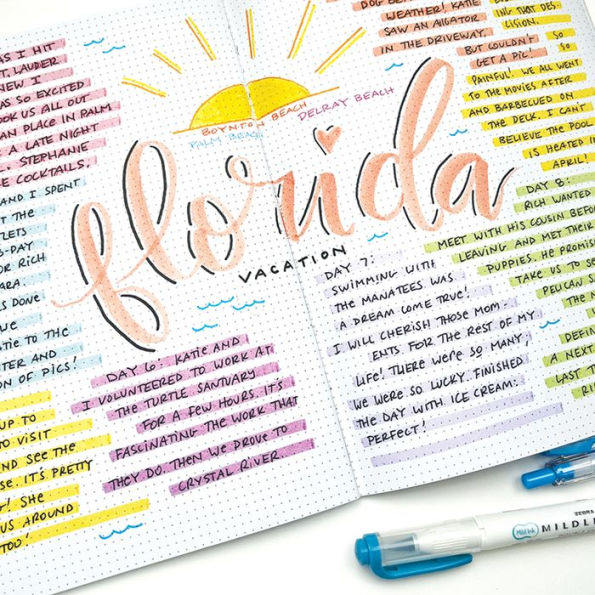 AS I HIT
T. LAUDER
NEW I
AS SO EXCITED
OOK US ALL OUT
AN PLACE IN PALM
A LATE NIGHT
STEPHANIE
E COCKTAILS.
AND I SPENT
T THE
LETS
-DAY
OR RICH
ARA.
S DONE
WE
ATIE TO THE
TER AND
ON OF PICS!
UP TO
TO VISIT
AND SEE THE
SE. IT'S PRETTY
G! SHE
US AROUND
TOO!
BOYNTON BEACH
PALM BEACH
DELRAY BEACH
florida
VACATION
DAY 6: KATIE AND
I VOLUNTEERED TO WORK AT
THE TURTLE SANTUARY
FOR A FEW HOURS. IT'S
FASCINATING THE WORK THAT
THEY DO. THEN WE DROVE TO
CRYSTAL RIVER
DAY 7:
SWIMMING WITH
THE MANATEES WAS
A DREAM COME TRUE!
I WILL CHERISH THOSE MOM-
ENTS FOR THE REST OF MY
LIFE! THERE WERE SO MANY;
WE WERE SO LUCKY. FINISHED
THE DAY WITH ICE CREAM:
PERFECT!
DOG BE
WEATHER! KATIE
SAW AN ALLIGATOR
IN THE DRIVEWAY.
BUT COULDN'T
GET A PIC!
ING THAT DES-
CISION.
SO SO
PAINFUL! WE ALL WENT
TO THE MOVIES AFTER
AND BARBECUED ON
THE DECK. I CAN'T
BELIEVE THE POOL
IS HEATED IN
APRIL!
DAY 8:
RICH WANTED
MEET WITH HIS COUSIN BEFO
LEAVING AND MET THEIR
PUPPIES. HE PROMIS
TAKE US TO SE
PELICAN S
THE N
DEFIN
A NEXT
LAST T
RI
ZEBRA
Mild Ink
MILDLI